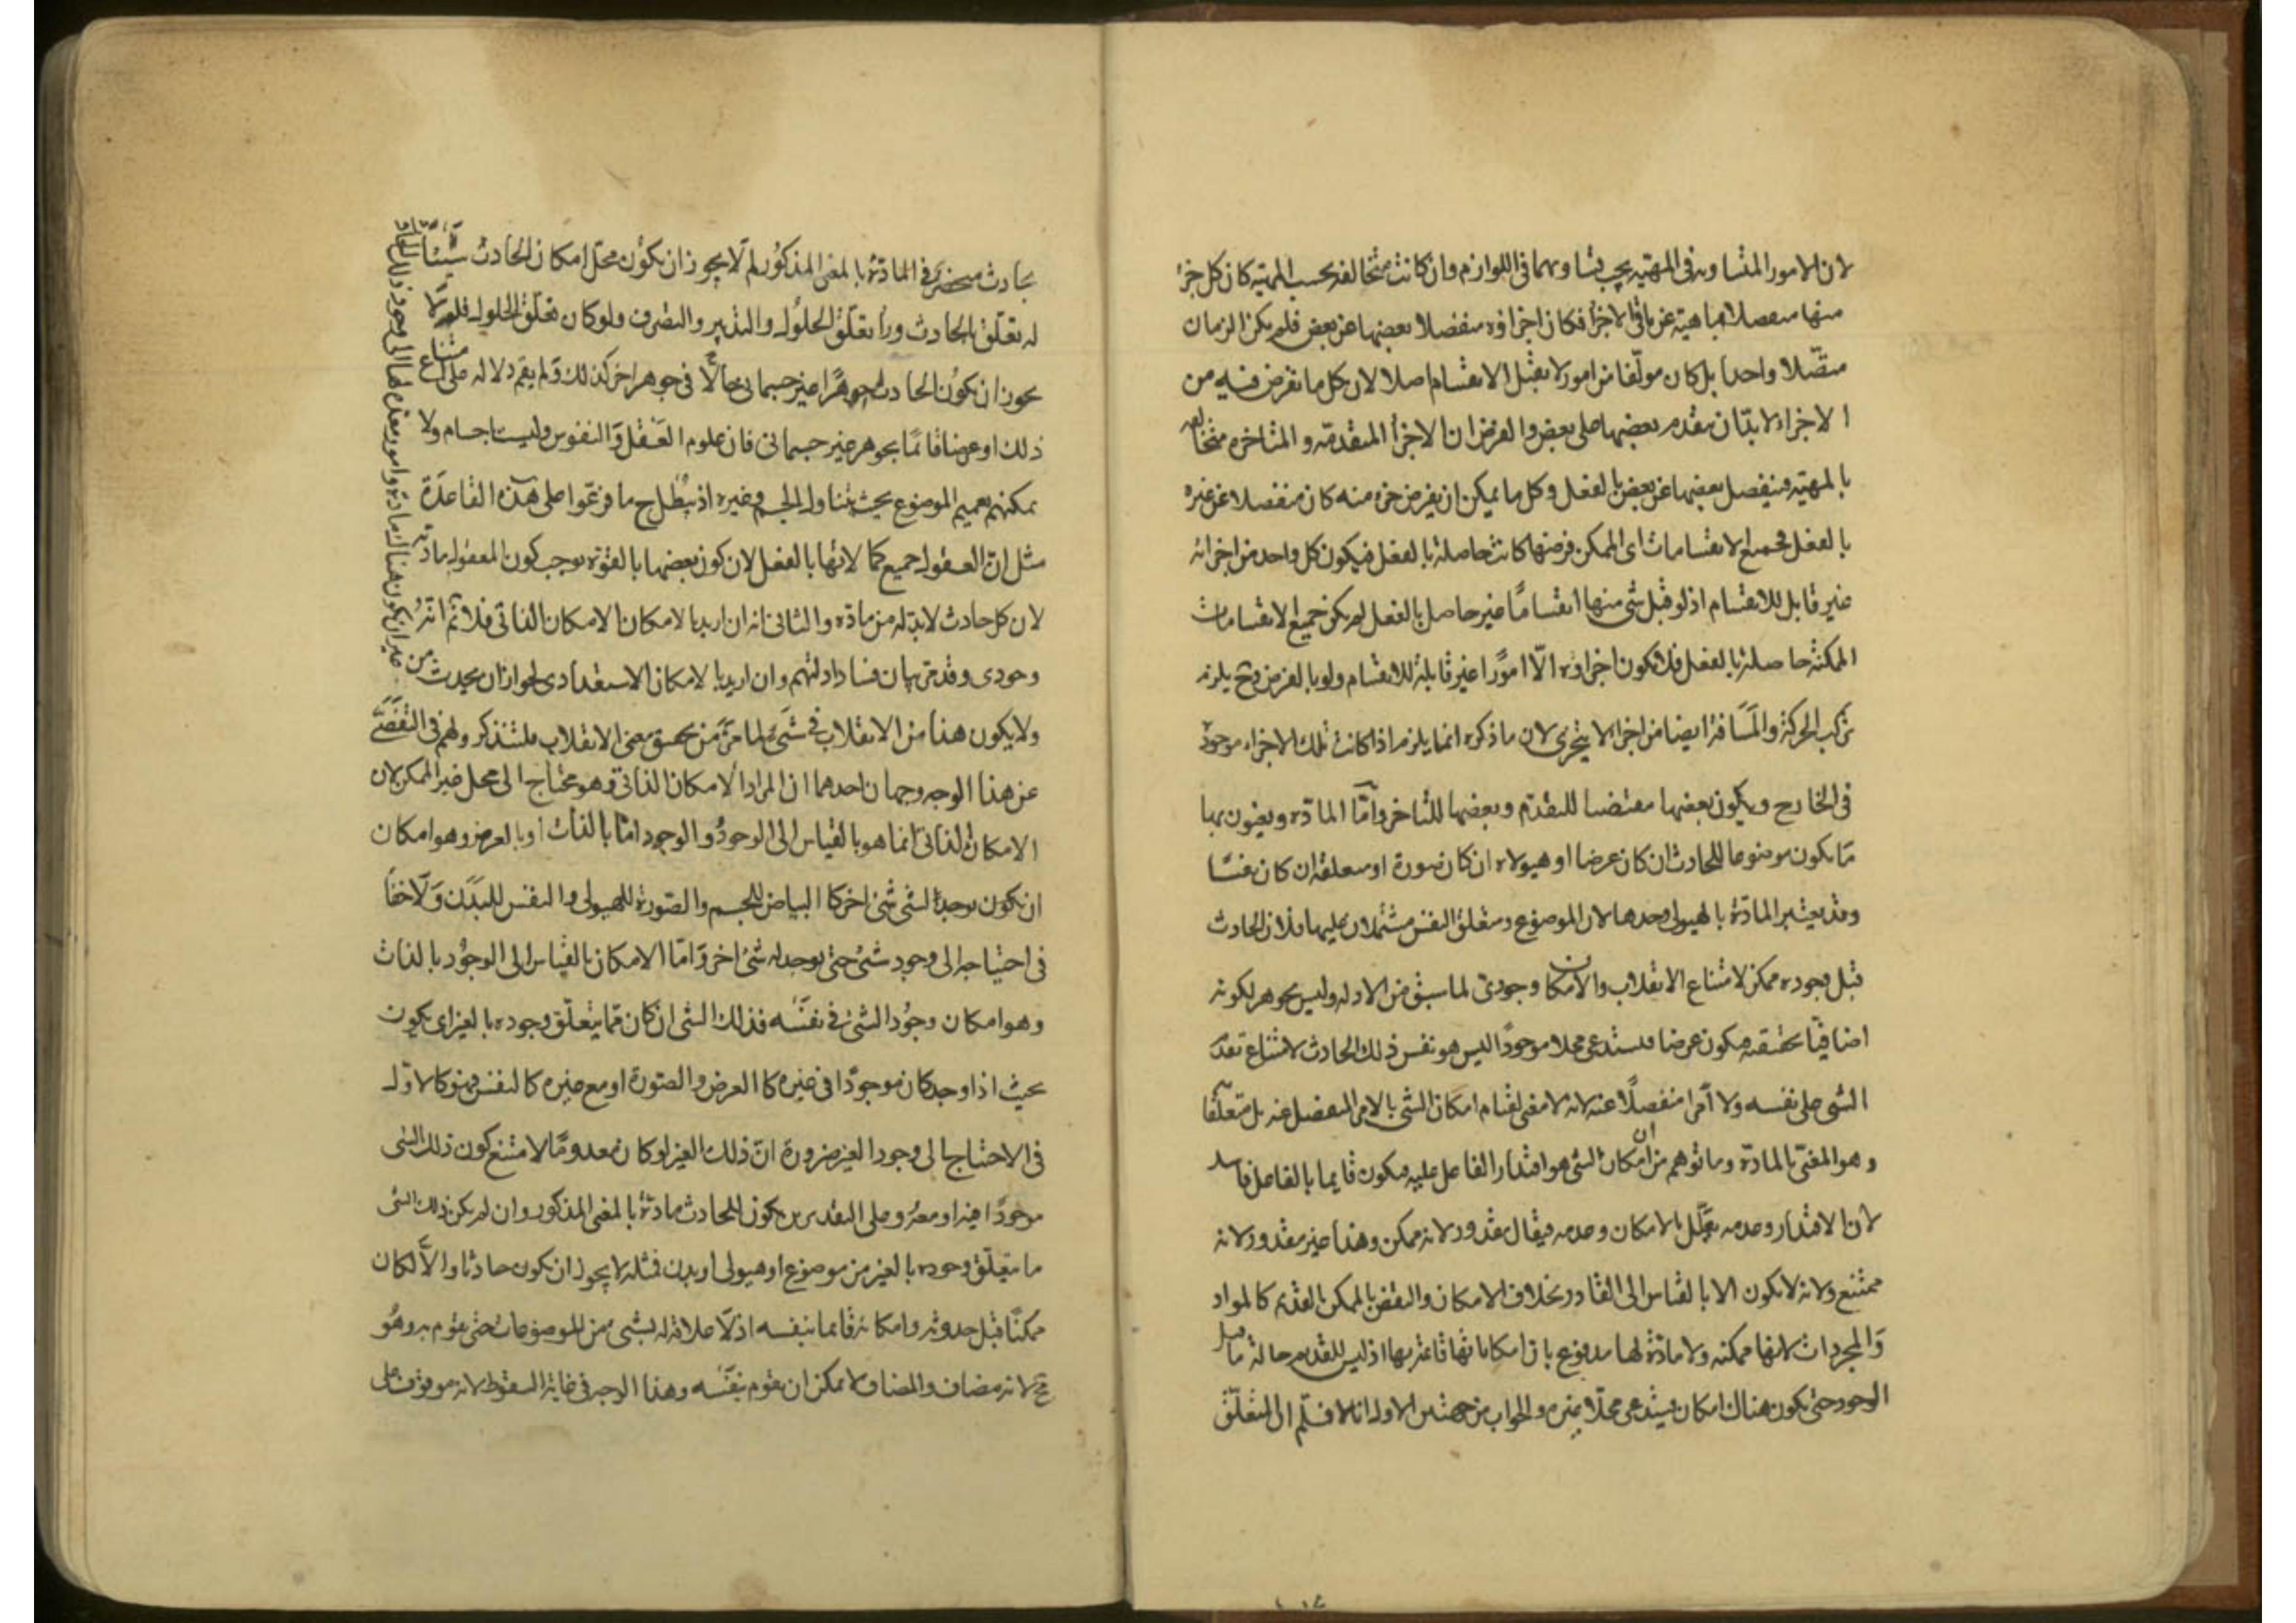 لان الامور المتساوية فى المهيّة يجب تساويهما فى اللوازم وان كانت متخالفه بحسب المهيّة كان كل جزء
منها منفصلا بماهيته عن باقى الاجزاء فكان اجزاؤه منفصلا بعضها عن بعض فلم يكن الزمان
متّصلا واحدا بل كان مولّفا من امور لا تقبل الانقسام اصلا لان كل ما تفرض فيه من
الاجزاء لا بدّ ان يتقدم بعضها على بعض والفرض ان الاجزاء المتقدمّه والمتاخره متخالفه
بالمهيّه فينفصل بعضها عن بعض بالفعل وكل ما يمكن ان يفرض جزء منه كان منفصلا عن غيره
بالفعل فجميع الانقسامات اى الممكن فرضها كانت حاصلة بالفعل فيكون كل واحد من اجزائه
غير قابل للانقسام اذ لو قبل شى منها انقسامًا غير حاصل بالفعل لم يكن جميع الانقسامات
الممكنة حاصلة بالفعل فلا تكون اجزاؤه الّا امورًا غير قابلة للانقسام ولو بالفرض وح يلزم
تركب الحركة والمسَافة ايضا من اجزاء لا يتجزى لان ما ذكره انما يلزم اذا كانت تلك الاجزاء موجودة
فى الخارج ويكون بعضها مقتضيا للتقدّم وبعضها للتاخر وامّا المادّه ويعنون بها
مَا يكون موضوعا للحادث ان كان عرضا او هيولاه ان كان صورة او متعلقه ان كان نفسًا
وقد يعتبر المادّة بالهيولى وحدها لان الموضوع ومتعلق النفس مشتملان عليها فلان الحادث
قبل وجوده ممكن لامتناع الانقلاب والامكان وجودىّ لما سبق من الادله وليس بجوهر لكونه
اضافيّا بحقيقته فيكون عرضا فيستدعى محلا موجودًا ليس هو نفس ذلك الحادث لامتناع تقدّم
الشى على نفسه ولا امرا منفصلًا عنه لانه لا معنى لقيام امكان الشى بالامر المنفصل عنه بل متعلّقا
وهو المعنىّ بالمادّة وما توهم من ان امكان الشى هو اقتدار الفاعل عليه فيكون قايما بالفاعل فاسد
لان الاقتدار وعدمه يعلّل بالامكان وعدمه فيقال مقدور لانه ممكن وهذا غير مقدور لانه
ممتنع ولانه لا يكون الا بالقياس الى القادر بخلاف الامكان والنقض بالممكن القديم كالمواد
وَالمجردات لانها ممكنه ولا مادّة لها مدفوع بان امكاناتها قائمة بها اذ ليس للقديم حالة ما قبل
الوجود حتى يكون هناك امكان يستدعى محلّا غيره والجواب من جهتين الاول انا لا نسلّم ان التعلّق
بحادث منحصر فى المادّة بالمعنى المذكور لم لَا يجوز ان يكون محل امكان الحادث شيئًا
له تعلّق بالحادث وراء تعلّق الحلوُل والتدبير والتصرف ولو كان تعلّق الحلول فلم لا
يجوز ان يكوُن الحادث جوهرًا غير جسمانى حالّا فى جوهر اخر كذلك ولم يقم دلاله على امتناع
ذلك او عرضا قائمًا بجوهر غير جسمانى فان علوم العَقل وَالنفوس وليست باجسام ولا
يمكنهم تعميم الموضوع بحيث يتناول الجسم وغيره اذ يبطل ح ما فرعّوا على هذه القاعدَة
مثل انّ العقول جميع كمالاتها بالفعل لان كون بعضها بالقوّه يوجب كون المعقول ماديّة
لان كل حادث لا بدّ له من مادّه والثانى انه ان اريد بالامكان الامكان الذاتى فلا نمّ انّه
وجودى وقد مرّ بيان فساد ادلتهم وان اريد بالامكان الاستعدادى لجواز ان يحدث من
غير ان يكون هناك مادّة وامور معدّة لها الى وجود ذلك الحادث
ولا يكون هذا من الانقلاب فى شَىء لما مرّ من تحقيق معنى الانقلاب فلتتذكر ولهم فى التفصّى
عن هذا الوجه وجهان احدهما ان المراد الامكان الذاتى وهو محتاج الى محل غير الممكن لان
الامكان الذاتى انما هو بالقياس الى الوجودُ والوجود امّا بالذات او بالعرض وهو امكان
ان يكون يوجد الشى شئ اخر كالبياض للجسم والصورة للهيولى والنفس للبدَن وَلَا خفاء
فى احتياجه الى وجود شئ حتى يوجد له شئ اخر وَامّا الامكان بالقياس الى الوجوُد بالذات
وهو امكان وجوُد الشئ فى نفسَه فذلك الشى ان كان ممّا يتعلّق وجوده بالغير اى يكون
بحيث اذا وجد كان موجودًا فى غيره كالعرض والصّورة او مع غيره كالنفس فهو كالاوّل
فى الاحتياج الى وجود الغير ضرورة انّ ذلك الغير لو كان معدومًا لامتنع كون ذلك الشى
موجودًا فيه او معهُ وعلى التقديرين يكون للحادث مادّة بالمعنى المذكور وان لم يكن ذلك الشى
ما يتعلّق وجوده بالغير من موضوع او هيولى او بدن فمثله لا يجوز ان يكون حادثا والاّ لكان
ممكنًا قبل حدوثه وامكانه قائما بنفسه اذ لَا علاقة له بشى من الموضوعات حتى يقوم به وهُو
مح لانه مضاف والمضاف لا يمكن ان يقوم بنفسَه وهذا الوجه فى غاية السقوط لانه موقوف على